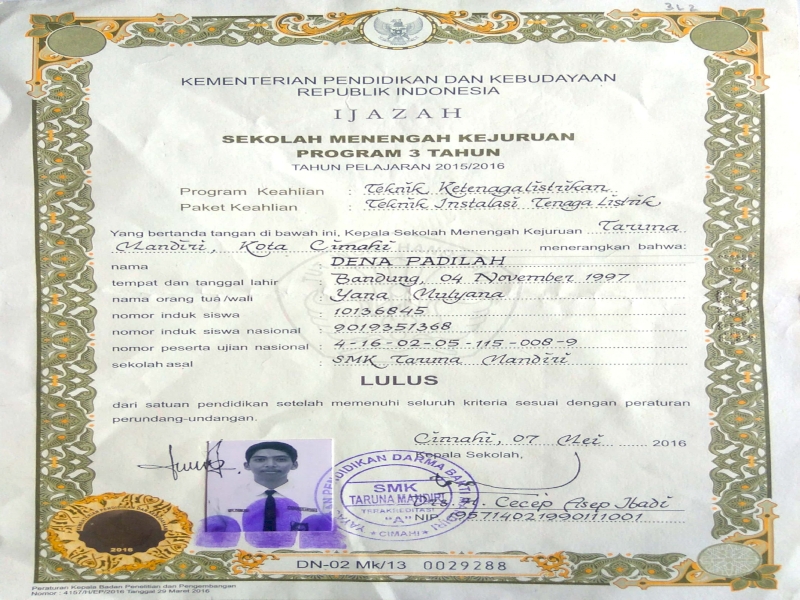 3L2
KEMENTERIAN PENDIDIKAN DAN KEBUDAYAAN
REPUBLIK INDONESIA
IJAZAH
SEKOLAH MENENGAH KEJURUAN
PROGRAM 3 TAHUN
TAHUN PELAJARAN 2015/2016
Program Keahlian : Teknik Ketenagalistrikan
Paket Keahlian : Teknik Instalasi Tenaga Listrik
Yang bertanda tangan di bawah ini, Kepala Sekolah Menengah Kejuruan Taruna
Mandiri, Kota Cimahi menerangkan bahwa:
nama : DENA PADILAH
tempat dan tanggal lahir : Bandung, 04 November 1997
nama orang tua/wali : Yana Mulyana
nomor induk siswa : 10136845
nomor induk siswa nasional : 9019351368
nomor peserta ujian nasional : 4-16-02-05-115-008-9
sekolah asal : SMK Taruna Mandiri
LULUS
dari satuan pendidikan setelah memenuhi seluruh kriteria sesuai dengan peraturan
perundang-undangan.
Cimahi, 07 Mei 2016
Kepala Sekolah,
PENDIDIKAN DARMA
SMK
TARUNA MANDIRI
TERAKREDITASI
"A"
CIMAHI
Cecep Asep
NIP
2016
DN-02 Mk/13 0029288
Peraturan Kepala Badan Penelitian dan Pengembangan
Nomor : 4157/H/EP/2016 Tanggal 29 Maret 2016